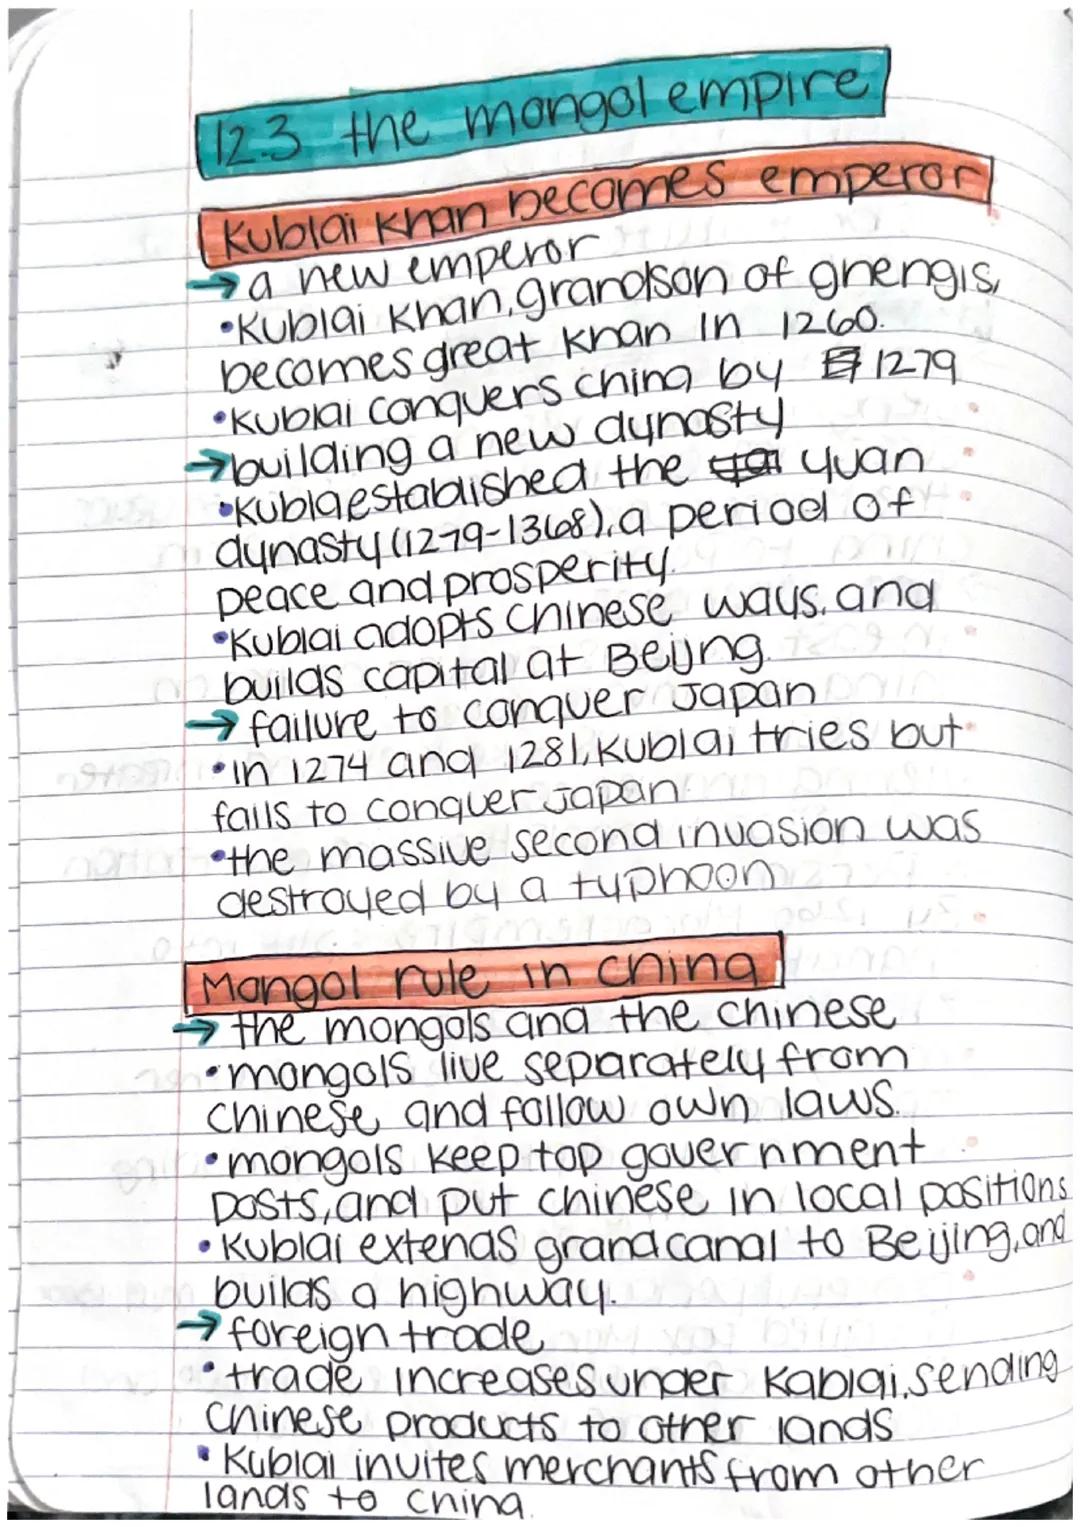 12.3 the mongol empire
Kublai Khan becomes emperor
→ a new emperor
•Kublai Khan, grandson of ghengis,
becomes great khan in 1260.
•Kublai conquers china by 1279
→building a new dynasty
•Kubla established the yuan
dynasty (1279-1368), a period of
peace and prosperity.
•Kublai adopts chinese ways, and
builds capital at Beijng.
→ failure to conquer Japan
•in 1274 and 1281, Kublai tries but
fails to conquer Japan
•the massive second invasion was
destroyed by a typhoon
Mongol rule in china
→ the mongols and the chinese
•mongols live separately from
chinese and follow own laws.
•mongols keep top government
posts, and put chinese in local positions
•Kublai extends grand canal to Beijing, and
builds a highway.
→ foreign trade
•trade increases under Kablai, sending
chinese products to other lands
•Kublai invites merchants from other
lands to china.